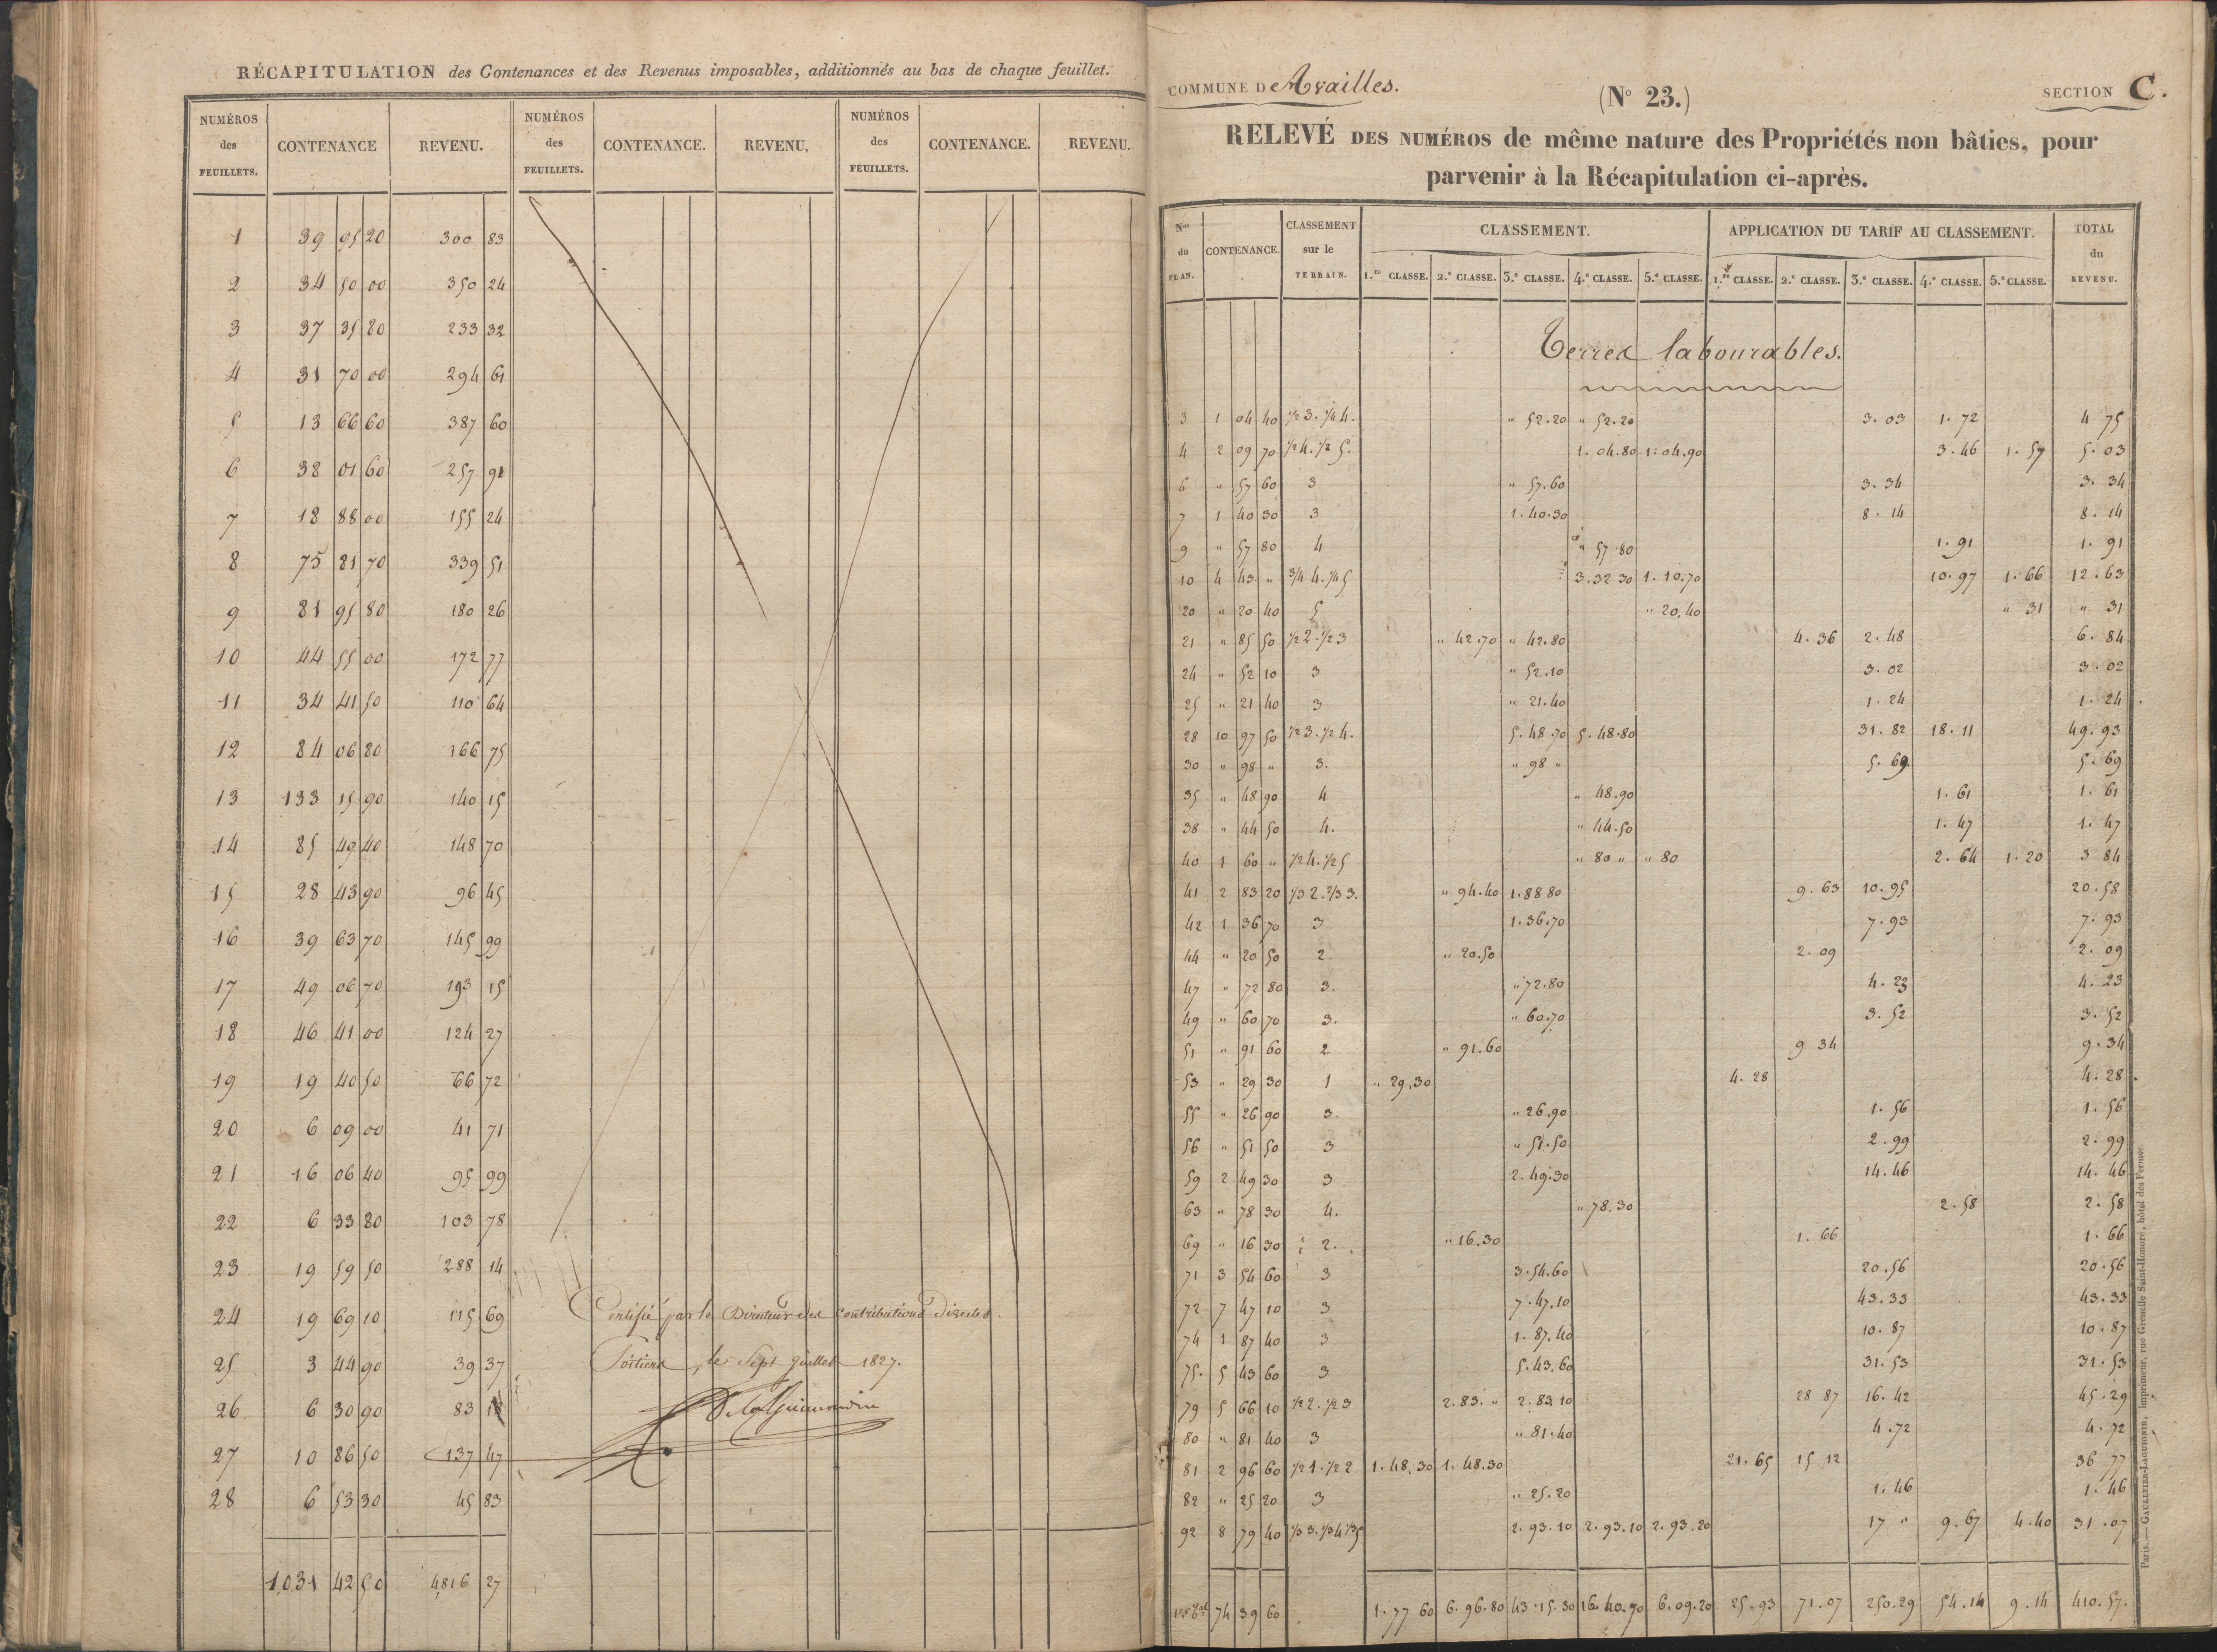 RÉCAPITULATION des Contenances et des Revenus imposables, additionnés au bas de chaque feuillet.
NUMÉROS des FEUILLETS. CONTENANCE REVENU. NUMÉROS des FEUILLETS. CONTENANCE. REVENU, NUMÉROS des FEUILLETS. CONTENANCE. REVENU.
1 39 95 20 300 83
2 34 50 00 350 24
3 37 35 80 233 32
4 31 70 00 294 61
5 13 66 60 387 60
6 38 01 60 257 91
7 18 88 00 155 24
8 75 81 70 339 51
9 81 95 80 180 26
10 44 55 00 172 77
11 34 41 50 110 64
12 84 06 80 166 75
13 133 15 90 140 15
14 85 49 40 148 70
15 28 43 90 96 45
16 39 63 70 145 99
17 49 06 70 193 15
18 46 41 00 124 27
19 19 40 50 66 72
20 6 09 00 41 71
21 16 06 40 95 99
22 6 33 80 103 78
23 19 59 50 288 14
24 19 69 10 115 69
25 3 44 90 39 37
26 6 30 90 83
27 10 86 50 137 47
28 6 53 30 45 83
1,031 42 50 4,816 27
Certifié par le Directeur des Contributions Directes.
Poitiers, le Sept juillet 1827.
COMMUNE DE Availles.
(N° 23.)
SECTION C.
RELEVÉ DES NUMÉROS de même nature des Propriétés non bâties, pour
parvenir à la Récapitulation ci-après.
Nos du PLAN. CONTENANCE. CLASSEMENT sur le TERRAIN. CLASSEMENT. APPLICATION DU TARIF AU CLASSEMENT. TOTAL du REVENU.
1.re CLASSE. 2.e CLASSE. 3.e CLASSE. 4.e CLASSE. 5.e CLASSE. 1.re CLASSE. 2.e CLASSE. 3.e CLASSE. 4.e CLASSE. 5.e CLASSE.
Terres labourables.
3 1 04 40 1/2 3. 1/2 4. " 52.20 " 52.20 3. 03 1. 72 4 75
4 2 09 70 1/2 4. 1/2 5. 1. 04.80 1. 04.90 3. 46 1. 57 5. 03
6 " 57 60 3 " 57.60 3. 34 3. 34
7 1 40 30 3 1. 40.30 8. 14 8. 14
9 " 57 80 4 " 57 80 1. 91 1. 91
10 4 43 " 3/4 4. 1/4 5 3. 32 30 1. 10.70 10. 97 1. 66 12. 63
20 " 20 40 5 " 20.40 " 31 " 31
21 " 85 50 1/2 2. 1/2 3 " 42.70 " 42.80 4. 36 2. 48 6. 84
24 " 52 10 3 " 52.10 3. 02 3. 02
25 " 21 40 3 " 21.40 1. 24 1. 24
28 10 97 50 1/2 3. 1/2 4. 5. 48.70 5. 48.80 31. 82 18. 11 49. 93
30 " 98 " 3. " 98 " 5. 69 5. 69
35 " 48 90 4 " 48.90 1. 61 1. 61
38 " 44 50 4. " 44.50 1. 47 1. 47
40 1 60 " 1/2 4. 1/2 5 " 80 " " 80 2. 64 1. 20 3 84
41 2 83 20 1/3 2. 2/3 3. " 94.40 1. 88 80 9. 63 10. 95 20. 58
42 1 36 70 3 1. 36.70 7. 93 7. 93
44 " 20 50 2 " 20.50 2. 09 2. 09
47 " 72 80 3. " 72.80 4. 23 4. 23
49 " 60 70 3. " 60.70 3. 52 3. 52
51 " 91 60 2 " 91.60 9 34 9. 34
53 " 29 30 1 " 29.30 4. 28 4. 28
55 " 26 90 3. " 26.90 1. 56 1. 56
56 " 51 50 3 " 51.50 2. 99 2. 99
59 2 49 30 3 2. 49.30 14. 46 14. 46
63 " 78 30 4. " 78.30 2. 58 2. 58
69 " 16 30 2. " 16.30 1. 66 1. 66
71 3 54 60 3 3. 54.60 20. 56 20. 56
72 7 47 10 3 7. 47.10 43. 33 43. 33
74 1 87 40 3 1. 87.40 10. 87 10. 87
75. 5 43 60 3 5. 43.60 31. 53 31. 53
79 5 66 10 1/2 2. 1/2 3 2. 83. " 2. 83 10 28 87 16. 42 45. 29
80 " 81 40 3 " 81.40 4. 72 4. 72
81 2 96 60 1/2 1. 1/2 2 1. 48.30 1. 48.30 21. 65 15 12 36 77
82 " 25 20 3 " 25.20 1. 46 1. 46
92 8 79 40 1/3 3. 1/3 4 1/3 5 2. 93.10 2. 93.10 2. 93.20 17 " 9. 67 4. 40 31. 07
74 39 60 1. 77 60 6. 96.80 43. 15.30 16. 40.70 6. 09.20 25. 93 71. 07 250. 29 54. 14 9. 14 410. 57.
Paris. — GAULTIER-LAGUIONIE, imprimeur, rue Grenelle Saint-Honoré, hôtel des Fermes.